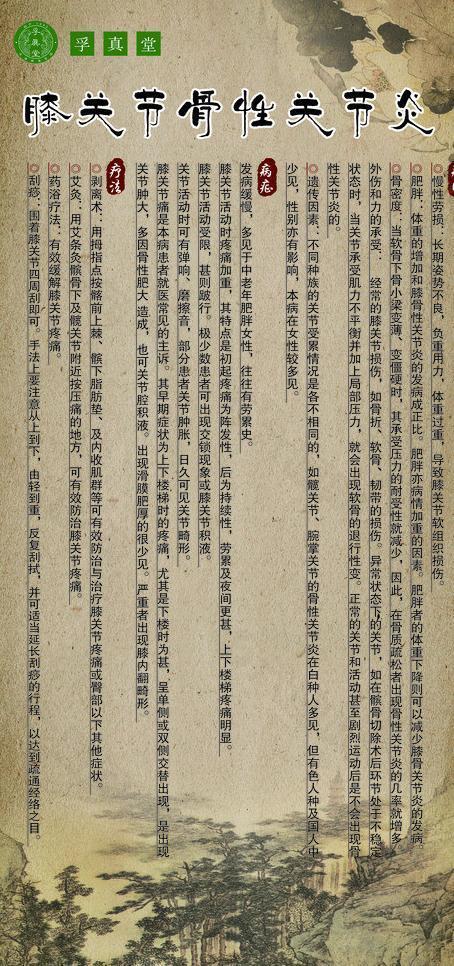 孚真堂
孚真堂
膝关节骨性关节炎
慢性劳损：长期姿势不良，负重用力，体重过重，导致膝关节软组织损伤。
肥胖：体重的增加和膝骨性关节炎的发病成正比。肥胖亦病情加重的因素。肥胖者的体重下降则可以减少膝骨关节炎的发病。
骨密度：当软骨下骨小梁变薄、变僵硬时，其承受压力的耐受性就减少，因此，在骨质疏松者出现骨性关节炎的几率就增多
外伤和力的承受： 经常的膝关节损伤，如骨折、软骨、韧带的损伤。异常状态下的关节，如在髌骨切除术后环节处于不稳定
状态时，当关节承受肌力不平衡并加上局部压力，就会出现软骨的退行性变。正常的关节和活动甚至剧烈运动后是不会出现骨
性关节炎的。
遗传因素：不同种族的关节受累情况是各不相同的，如髋关节、腕掌关节的骨性关节炎在白种人多见，但有色人种及国人中
少见，性别亦有影响，本病在女性较多见。
病症
发病缓慢，多见于中老年肥胖女性，往往有劳累史。
膝关节活动时疼痛加重，其特点是初起疼痛为阵发性，后为持续性，劳累及夜间更甚，上下楼梯疼痛明显。
膝关节活动受限，甚则跛行。极少数患者可出现交锁现象或膝关节积液。
关节活动时可有弹响、磨擦音，部分患者关节肿胀，日久可见关节畸形。
膝关节痛是本病患者就医常见的主诉。其早期症状为上下楼梯时的疼痛，尤其是下楼时为甚，呈单侧或双侧交替出现，是出现
关节肿大，多因骨性肥大 造成，也可关节腔积液。出现滑膜肥厚的很少见。严重者出现膝内翻畸形。
疗法
剥离术：用拇指点按髂前上棘、髌下脂肪垫、及内收肌群等可有效防治与治疗膝关节疼痛或臀部以下其他症状。
艾灸：用艾条灸髌骨下及髋关节附近按压痛的地方，可有效防治膝关节疼痛。
药浴疗法：有效缓解膝关节疼痛。
刮痧：围着膝关节四周刮即可。手法上要注意从上到下，由轻到重，反复刮拭，并可适当延长刮痧的行程，以达到疏通经络之目。